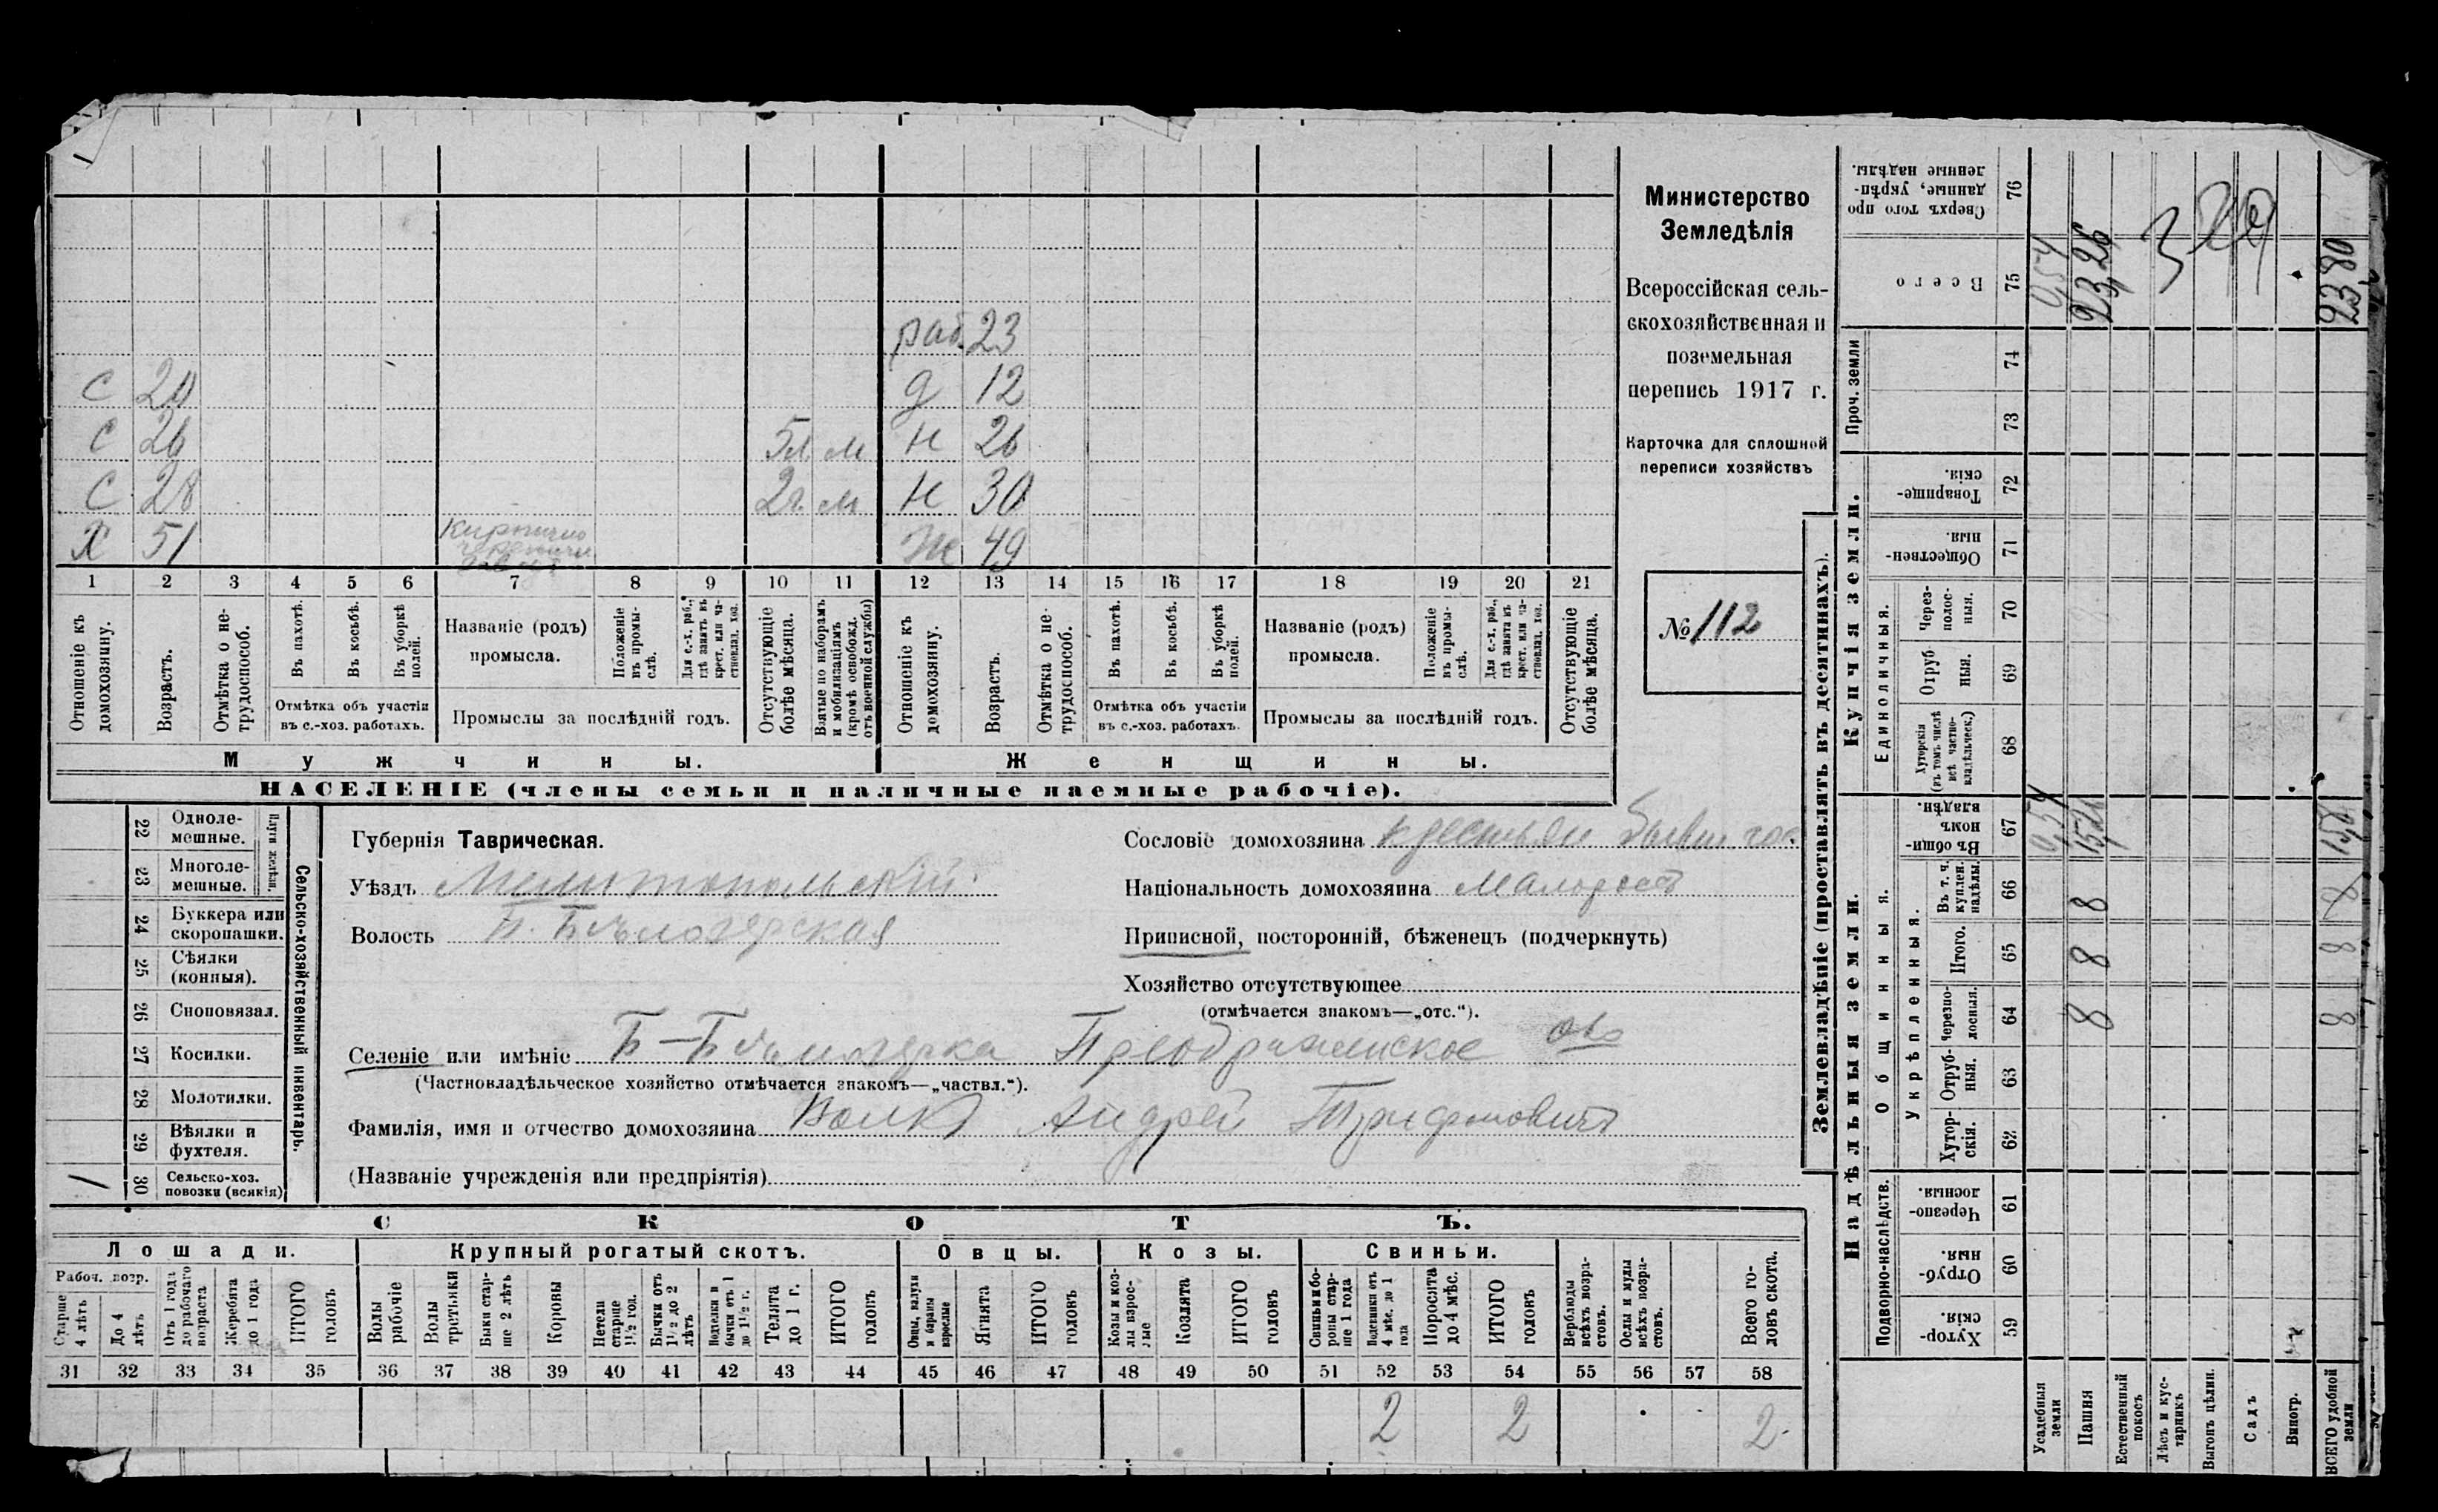 раб. 23
с 20 д 12
с 26 5л м н 26
с 28 2г. м н 30
Х 51 ж 49
1 2 3 4 5 6 7 8 9 10 11 12 13 14 15 16 17 18 19 20 21
Отношеніе къ домохозяину.
Возрастъ.
Отмѣтка о не-трудоспособ.
Въ пахотѣ.
Въ косьбѣ.
Въ уборкѣ полей.
Отмѣтка объ участіи
въ с.-хоз. работахъ.
Названіе (родъ)
промысла.
Положеніе въ промы-слѣ.
Для с.-х. раб., гдѣ занятъ въ крест. или ча-стновлад. хоз.
Промыслы за послѣдній годъ.
Отсутствующіе болѣе мѣсяца.
Взятые по наборамъ и мобилизаціямъ (кромѣ освобожд. отъ военной службы)
Отношеніе къ домохозяину.
Возрастъ.
Отмѣтка о не-трудоспособ.
Въ пахотѣ.
Въ косьбѣ.
Въ уборкѣ полей.
Отмѣтка объ участіи
въ с.-хоз. работахъ.
Названіе (родъ)
промысла.
Положеніе въ промы-слѣ.
Для с.-х. раб., гдѣ занятъ въ крест. или ча-стновлад. хоз.
Промыслы за послѣдній годъ.
Отсутствующіе болѣе мѣсяца.
Мужчины. Женщины.
НАСЕЛЕНІЕ (члены семьи и наличные наемные рабочіе).
Министерство
Земледѣлія
Всероссійская сель-
скохозяйственная и
поземельная
перепись 1917 г.
Карточка для сплошной
переписи хозяйствъ
№ 112
Сельско-хозяйственный инвентарь.
Плуги желѣзн.
22 Одноле-мешные.
23 Многоле-мешные.
24 Буккера или скоропашки.
25 Сѣялки (конныя).
26 Сноповязал.
27 Косилки.
28 Молотилки.
29 Вѣялки и фухтеля.
1 30 Сельско-хоз. повозки (всякія)
Губернія Таврическая.
Уѣздъ Мелитопольскій
Волость Б. Бѣлозерская
Сословіе домохозяина крестьян бывш гос.
Національность домохозяина Малоросъ
Приписной, посторонній, бѣженецъ (подчеркнуть)
Хозяйство отсутствующее
(отмѣчается знакомъ—„отс.“).
Селеніе или имѣніе Б-Бѣлозерка Преображенское о-во
(Частновладѣльческое хозяйство отмѣчается знакомъ—„частвл.“).
Фамилія, имя и отчество домохозяина Волкъ Андрей Трифоновичъ
(Названіе учрежденія или предпріятія)
СКОТЪ.
Лошади. Крупный рогатый скотъ. Овцы. Козы. Свиньи.
Рабоч. возр.
Старше 4 лѣтъ
До 4 лѣтъ
Отъ 1 года до рабочаго возраста
Жеребята до 1 года
ИТОГО головъ
Волы рабочіе
Волы третьяки
Быки стар-ше 2 лѣтъ
Коровы
Нетели старше 1½ год.
Бычки отъ 1½ до 2 лѣтъ
Телята до 1 г.
ИТОГО головъ
Овцы, валухи и бараны взрослые
Ягнята
ИТОГО головъ
Козы и коз-лы взрос-лые
Козлята
ИТОГО головъ
Свиньи и бо-ровы стар-ше 1 года
Подсвинки отъ 4 мѣс. до 1 года
Поросята до 4 мѣс.
ИТОГО головъ
Верблюды всѣхъ возра-стовъ.
Ослы и мулы всѣхъ возра-стовъ.
Всего го-ловъ скота.
31 32 33 34 35 36 37 38 39 40 41 42 43 44 45 46 47 48 49 50 51 52 53 54 55 56 57 58
2 2 2
Землевладѣніе (проставлять въ десятинахъ).
Надѣльныя земли.
Купчія земли.
Проч. земли
Подворно-наслѣдств.
Общинныя.
Укрѣпленныя.
Единоличныя.
59 Хутор-скія.
60 Отруб-ныя.
61 Черезпо-лосныя.
62 Хутор-скія.
63 Отруб-ныя.
64 Черезпо-лосныя.
65 Итого.
66 Въ т. ч. куплен. надѣлы.
67 Въ общин-номъ владѣн.
68 Хуторскія (въ томъ числѣ всѣ частно-владѣльческ.)
69 Отруб-ныя.
70 Через-полос-ныя.
71 Обществен-ныя.
72 Товарище-скія.
73
74
75 Всего
76 Сверхъ того про-данные, укрѣп-ленные надѣлы.
Усадебныя земли 0,54 0,54
Пашня 8 8 8 15,26 23,26
Естественный покосъ
Лѣсъ и кус-тарникъ
Выгонъ цѣлин.
Садъ
Виногр.
ВСЕГО удобной земли 8 8 8 23,80